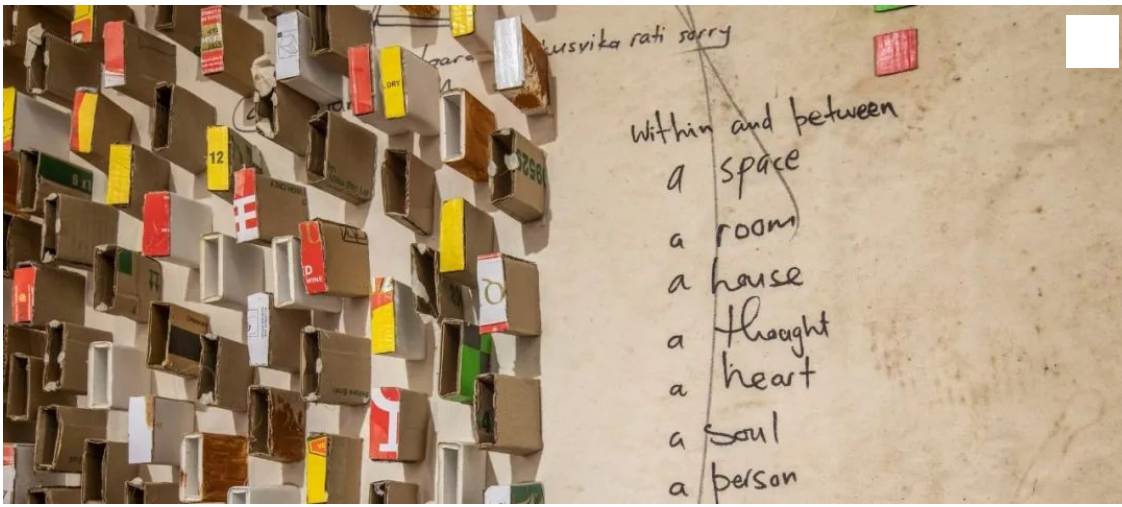 rati sorry
within and between
a space
a room
a house
a thought
a heart
a soul
a person
12
DRY
WINE